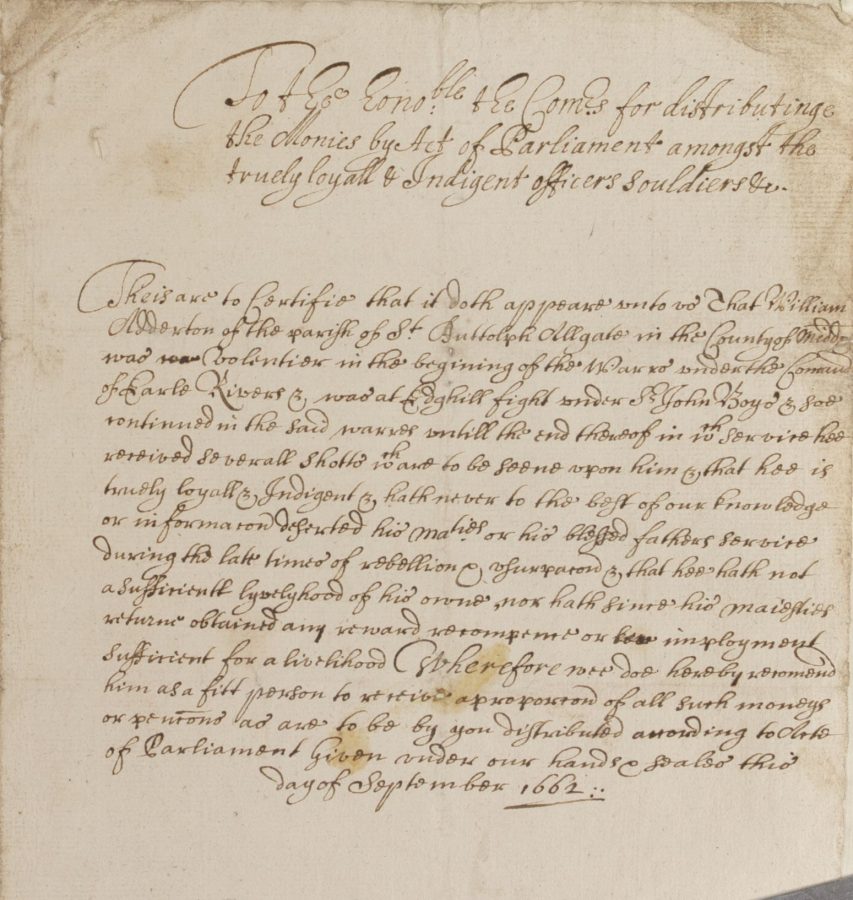 To the honoble the Comrs for distributinge
the Monies by Act of Parliament amongst the
truely loyall & Indigent officers souldiers &c.
Theis are to Certifie that it doth appeare unto us That William
Adderton of the parish of St Buttolph Allgate in the County of Midd
was Volontier in the begining of the Warrs under the Comand
of Earle Rivers & was at Edghill fight under Sr John Boys & soe
continued in the said warres untill the end thereof in wch service hee
received severall shotts wch are to be seene upon him & that hee is
truely loyall & Indigent & hath never to the best of our knowledge
or informacon deserted his maties or his blessed fathers service
during the late times of rebellion & usurpacon & that hee hath not
a sufficientt lyvelyhood of his owne nor hath since his maiesties
returne obtained any reward recompence or imployment
sufficient for a livelihood Wherefore wee doe hereby recomend
him as a fitt person to receive a proporcon of all such moneys
or pencons as are to be by you distributed according to Acte
of Parliament Given under our hands & seales this
day of September 1662